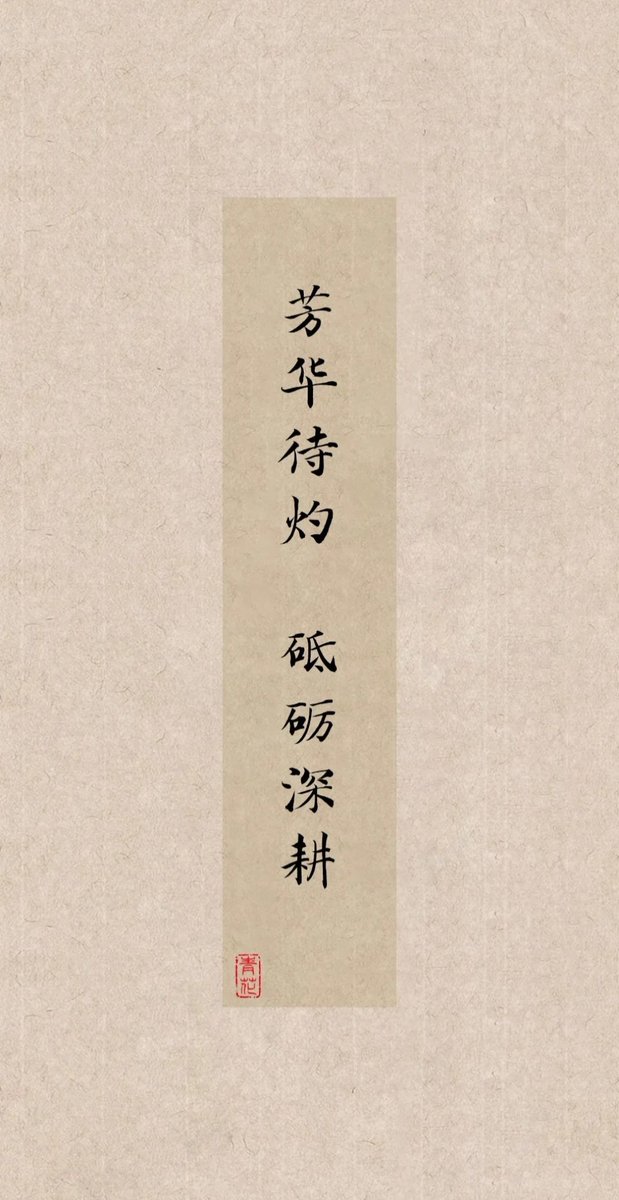 芳华待灼 砥砺深耕
青花